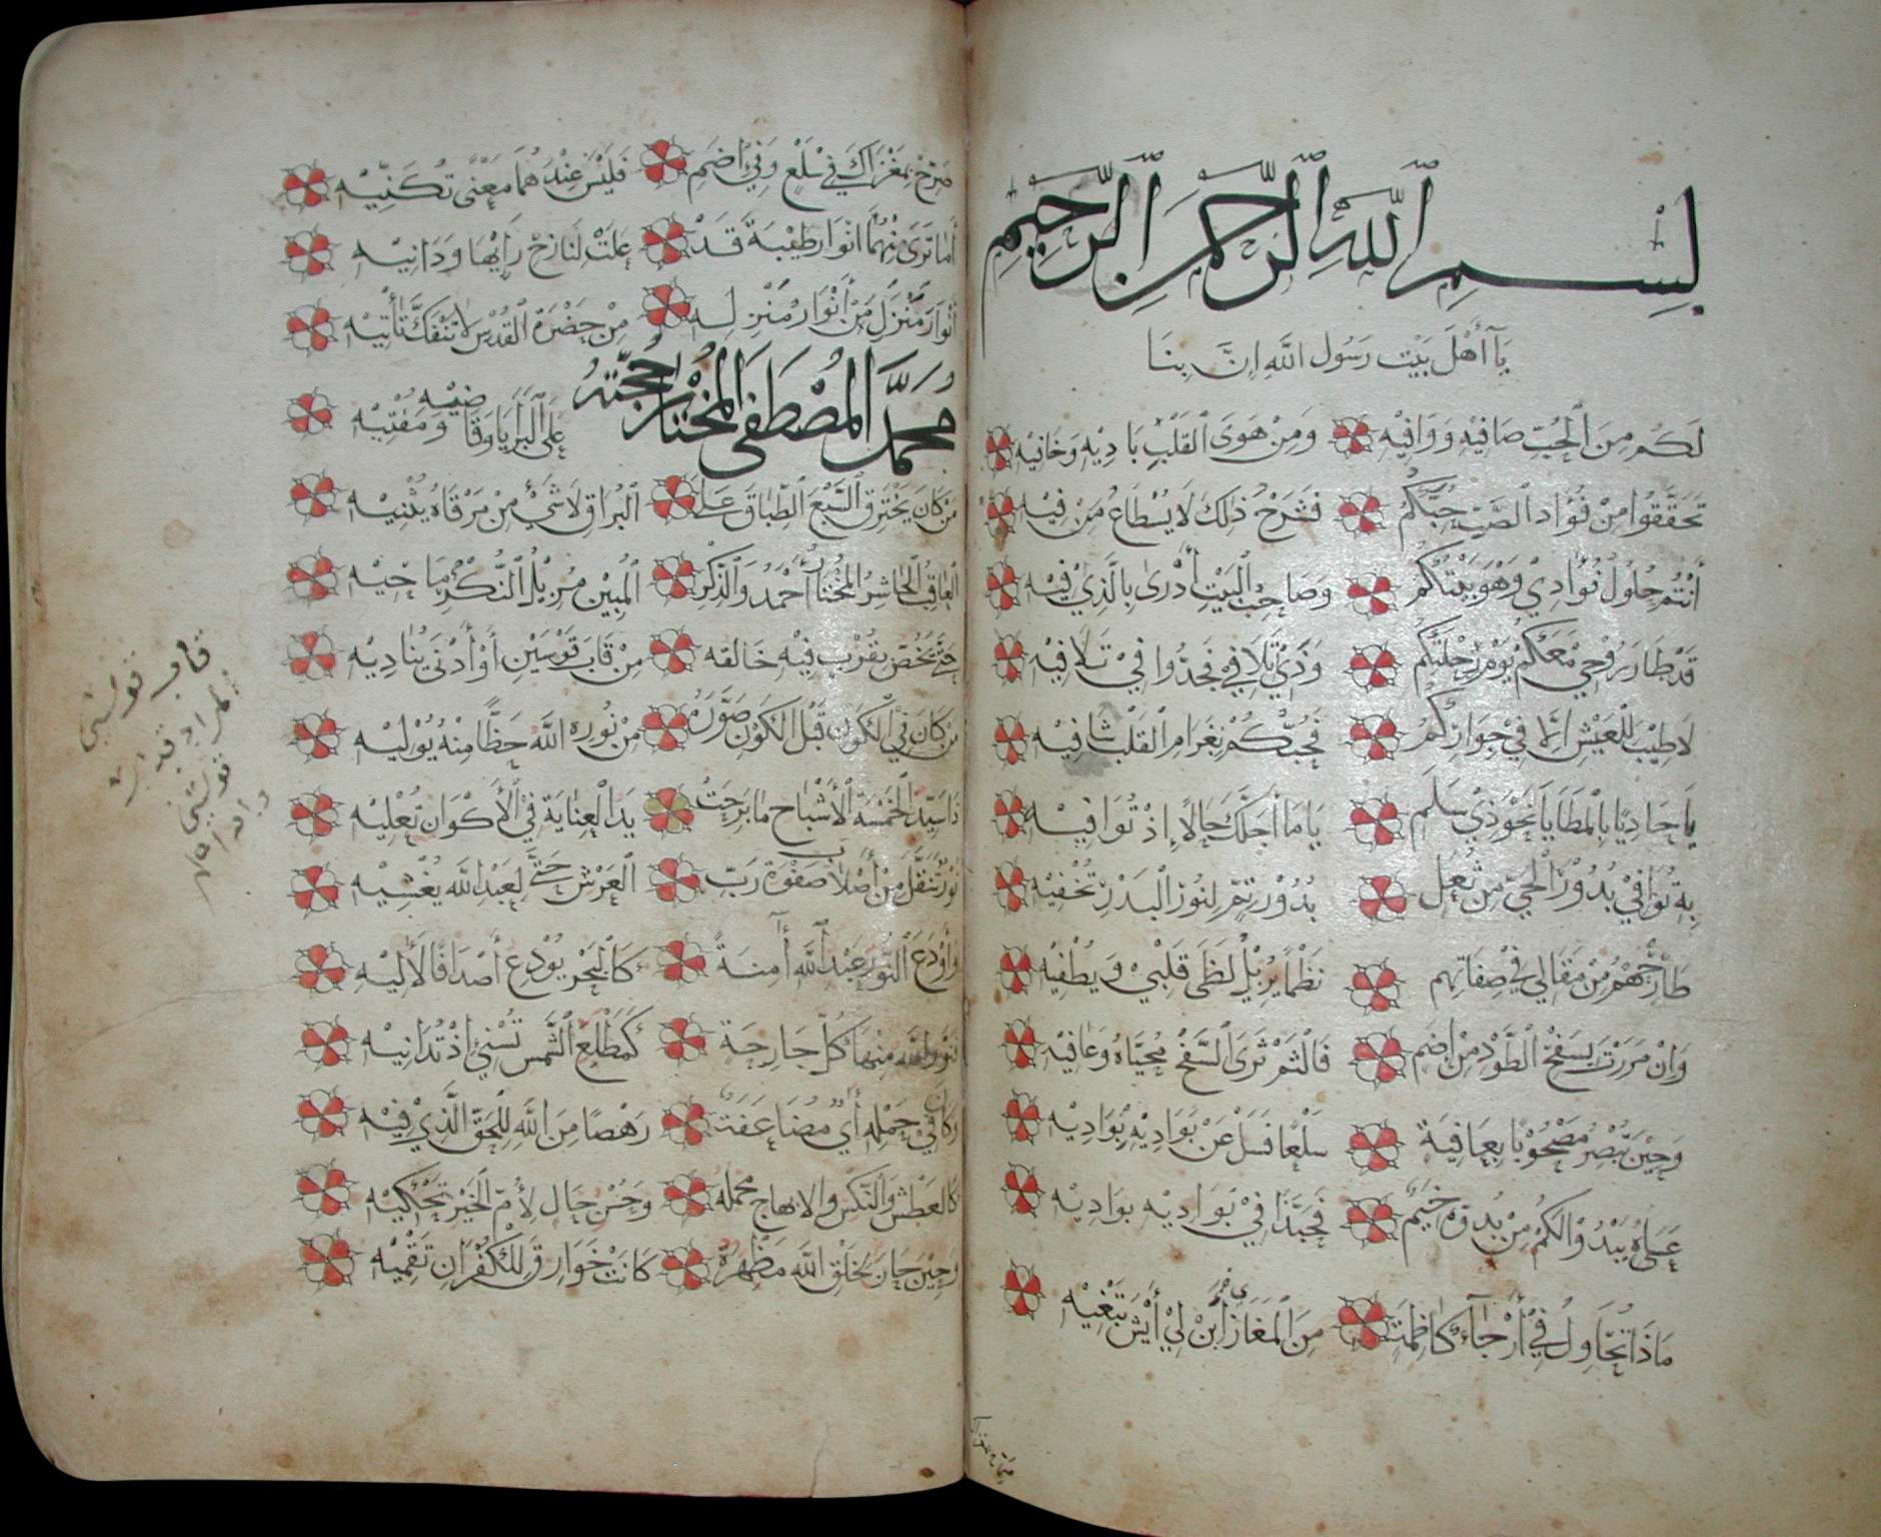 بِسْمِ اللَّهِ الرَّحْمٰنِ الرَّحِيمِ
يَآ أَهْلَ بَيْتِ رَسُول اللَّهِ إِنَّ بِنَا
لَكُم مِنَ الْحُبِّ صَافِيْهِ وَوَافِيْهِ وَمِنْ هَوَى الْقَلْبِ بَادِيْهِ وَخَافِيْهِ
تَحَقَّقُوا مِنْ فُؤَادِ الصَّبِّ حُبَّكُمُ فَشَرْحُ ذٰلِكَ لَا يُسْطَاعُ مِنْ فِيْهِ
أَنْتُم حُلُولُ فُؤَادِيْ وَهْوَ بَيْتُكُمُ وَصَاحِبُ الْبَيْتِ أَدْرَى بِالَّذِيْ فِيْهِ
قَدْ طَارَ رُوْحِيْ مَعَكُمْ يَوْمَ رِحْلَتِكُمْ وَذِيْ تَلَافِي فَجُدُّوا فِيْ تَلَافِيْهِ
لَا طِيْبَ لِلْعَيْشِ إِلَّا فِيْ جِوَارِكُمُ فَحُبُّكُمْ بِغَرَامِ الْقَلْبِ شَافِيْهِ
يَا حَادِيًا بِالْمَطَايَا نَحْوَ ذِيْ سَلَمِ يَا مَا أَجَلَّكَ حَالًا إِذْ تُوَافِيْهِ
بِهِ تُوَافِيْ بُدُوْرَ الْحَيِّ مِنْ ثُعَلِ بُدُوْرُ تِمٍّ لِنُوْرِ الْبَدْرِ تُخْفِيْهِ
طَارِحْهُمُ مِنْ مَقَالِي فِي صِفَاتِهِم نَظْمًا يُزِيْلُ لَظَى قَلْبِيْ وَيُطْفِيْهِ
وَإِنْ مَرَرْتَ بِسَفْحِ الطَّوْدِ مِنْ إِضَمِ فَالْثِمْ ثَرَى السَّفْحِ مُحَيَّاهُ وَعَافِيْهِ
وَحِيْنَ تُبْصِرُ مَصْحُوْبًا بِعَافِيَةٍ سَلْعًا فَسَلْ عَنْ بَوَادِيْهِ بَوَادِيْهِ
عَسَاهُ يَبْدُوْ لَكُمْ مِنْ خِيَمٍ فَحَبَّذَا فِيْ بَوَادِيْهِ بَوَادِيْهِ
مَاذَا تُحَاوِلُ فِيْ أَرْجَاءِ كَاظِمَةٍ مِنَ الْمَغَازِي أَبِنْ لِيْ أَيْشَ تَبْغِيْهِ
صَرِّحْ بِمَغْزَاكَ فِي سَلْعٍ وَفِيْ إِضَمِ فَلَيْسَ عِنْدَهُمَا مَعْنًى تُكَنِّيْهِ
أَمَا تَرَى مِنْهُمَا أَنْوَارَ طَيْبَةَ قَدْ عَلَتْ لَنَا رَايُهَا وَدَانِيْهِ
أَنْوَارُ مُنْزَلِ مَنْ أَنْوَارُ مُنْزِلِهِ مِنْ حَضْرَةِ الْقُدْسِ لَا تَنْفَكُّ تَأْتِيْهِ
مُحَمَّدُ الْمُصْطَفَى الْمُخْتَارُ حُجَّتُهُ عَلَى الْبَرَايَا وَقَاضِيْهِ وَمُفْتِيْهِ
مَنْ كَانَ يَخْتَرِقُ السَّبْعَ الطِّبَاقَ عَلَى الْبُرَاقِ لَا شَيْءَ مِنْ مَرْقَاهُ يُثْنِيْهِ
الْعَاقِبُ الْحَاشِرُ الْمُخْتَارُ أَحْمَدُ وَالذِّكْرُ الْمُبِيْنُ مُزِيْلُ النُّكْرِ مَاحِيْهِ
حَتَّى يَخُصَّ بِقُرْبٍ فِيْهِ خَالِقُهُ مِنْ قَابَ قَوْسَيْنِ أَوْ أَدْنَى يُنَادِيْهِ
مَنْ كَانَ فِي الْكَوْنِ قَبْلَ الْكَوْنِ صَوَّرَهُ مِنْ نُوْرِهِ اللَّهُ حَظًّا مِنْهُ يُوْلِيْهِ
ذَا سَيِّدُ الْخَمْسَةِ الْأَشْبَاحِ مَا بَرِحَتْ يَدُ الْعِنَايَةِ فِي الْأَكْوَانِ تُعْلِيْهِ
نُوْرٌ تَنَقَّلَ مِنْ أَصْلَابِ صَفْوَةِ رَبِّ الْعَرْشِ حَتَّى لِعَبْدِ اللَّهِ يُغْشِيْهِ
وَأَوْدَعَ النُّوْرَ عَبْدُ اللَّهِ آمِنَةً كَالْبَحْرِ يُوْدِعُ أَصْدَافًا لَآلِيْهِ
فَنَوَّرَ اللَّهُ مِنْهَا كُلَّ جَارِحَةٍ كَمَطْلَعِ الشَّمْسِ تُسْنِيْ إِذْ تُدَانِيْهِ
وَكَانَ فِي حَمْلِهِ آيٌ مُضَاعَفَةٌ رَهْصًا مِنَ اللَّهِ لِلْحَقِّ الَّذِيْ فِيْهِ
كَالْعَطْشِ وَالنَّكْسِ وَالابهاج مَحْمَلُهُ وَحُسْنِ حَالٍ لِأُمِّ الْخَيْرِ تَحْكِيْهِ
وَحِيْنَ حَانَ لِخَلْقِ اللَّهِ مَظْهَرُهُ كَانَتْ خَوَارِقُ لِلْكُفْرَانِ تَقْمِيْهِ
قاب قوسين